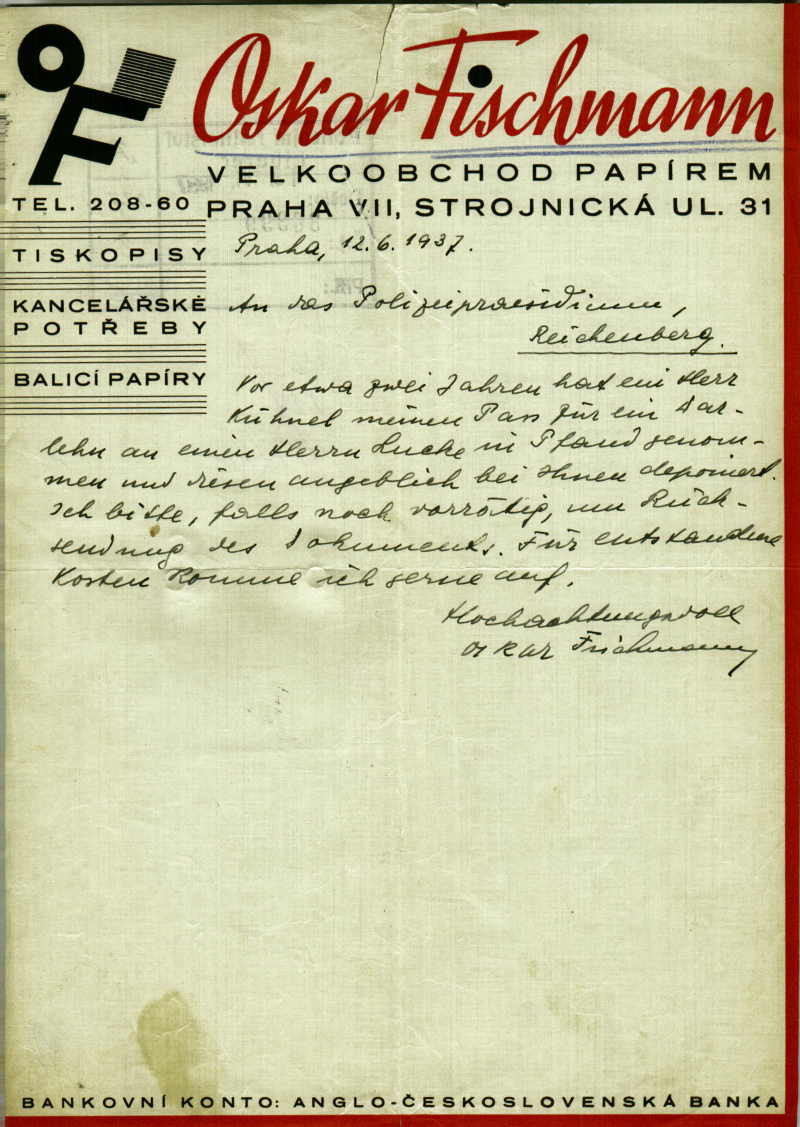 OF
Oskar Fischmann
VELKOOBCHOD PAPÍREM
TEL. 208-60
PRAHA VII, STROJNICKÁ UL. 31
TISKOPISY
KANCELÁŘSKÉ
POTŘEBY
BALICÍ PAPÍRY
Praha, 12.6.1937.
An das Polizeipraesidium,
Reichenberg.
Vor etwa zwei Jahren hat ein Herr
Kühnel meinen Pass für ein Dar-
lehn an einen Herrn Lucke in Pfand genom-
men und diesen angeblich bei Ihnen deponiert.
Ich bitte, falls noch vorrätig, um Rück-
sendung des Dokuments. Für entstandene
Kosten komme ich gerne auf.
Hochachtungsvoll
Oskar Fischmann
BANKOVNÍ KONTO: ANGLO-ČESKOSLOVENSKÁ BANKA